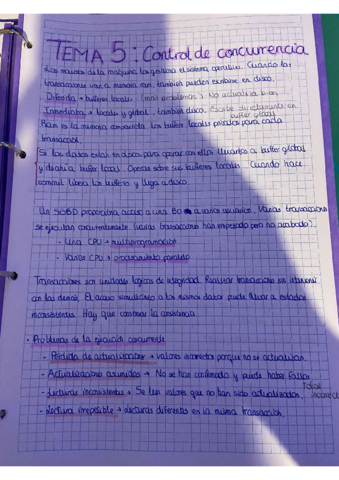 TEMA 5: Control de concurrencia
Los recursos de la máquina los gestiona el sistema operativo. Cuando las
transacciones van a memoria ram, también pueden escribirse en disco.
Diferida → buffers locales (más problemas). No actualiza bien.
Inmediata → locales y global, también disco. Escribe directamente en
buffer global
Ram es la memoria compartida. Los buffer locales privados para cada
transacción.
Si los datos están en disco para operar con ellos llevarlos a buffer global
y de ahí a buffer local. Operar sobre sus buffers locales. Cuando hace
commit libera los buffers y llega a disco.
Un SGBD proporciona acceso a una BD a varios usuarios. Varias transacciones
se ejecutan concurrentemente (varias transacciones han empezado pero no acabado).
- Una CPU → multiprogramación
- Varias CPU → procesamiento paralelo
Transacciones son unidades lógicas de integridad. Realizar transacción sin intervenir
con las demás. El acceso simultáneo a los mismos datos puede llevar a estados
inconsistentes. Hay que conservar la consistencia.
• Problemas de la ejecución concurrente
- Pérdida de actualizaciones → valores incorrectos porque no se actualizan.
- Actualizaciones asumidas → No se han confirmado y puede haber fallos
- Lecturas inconsistentes → Se leen valores que no han sido actualizados. Total incorrecto
- Lectura irrepetible → lecturas diferentes en la misma transacción.